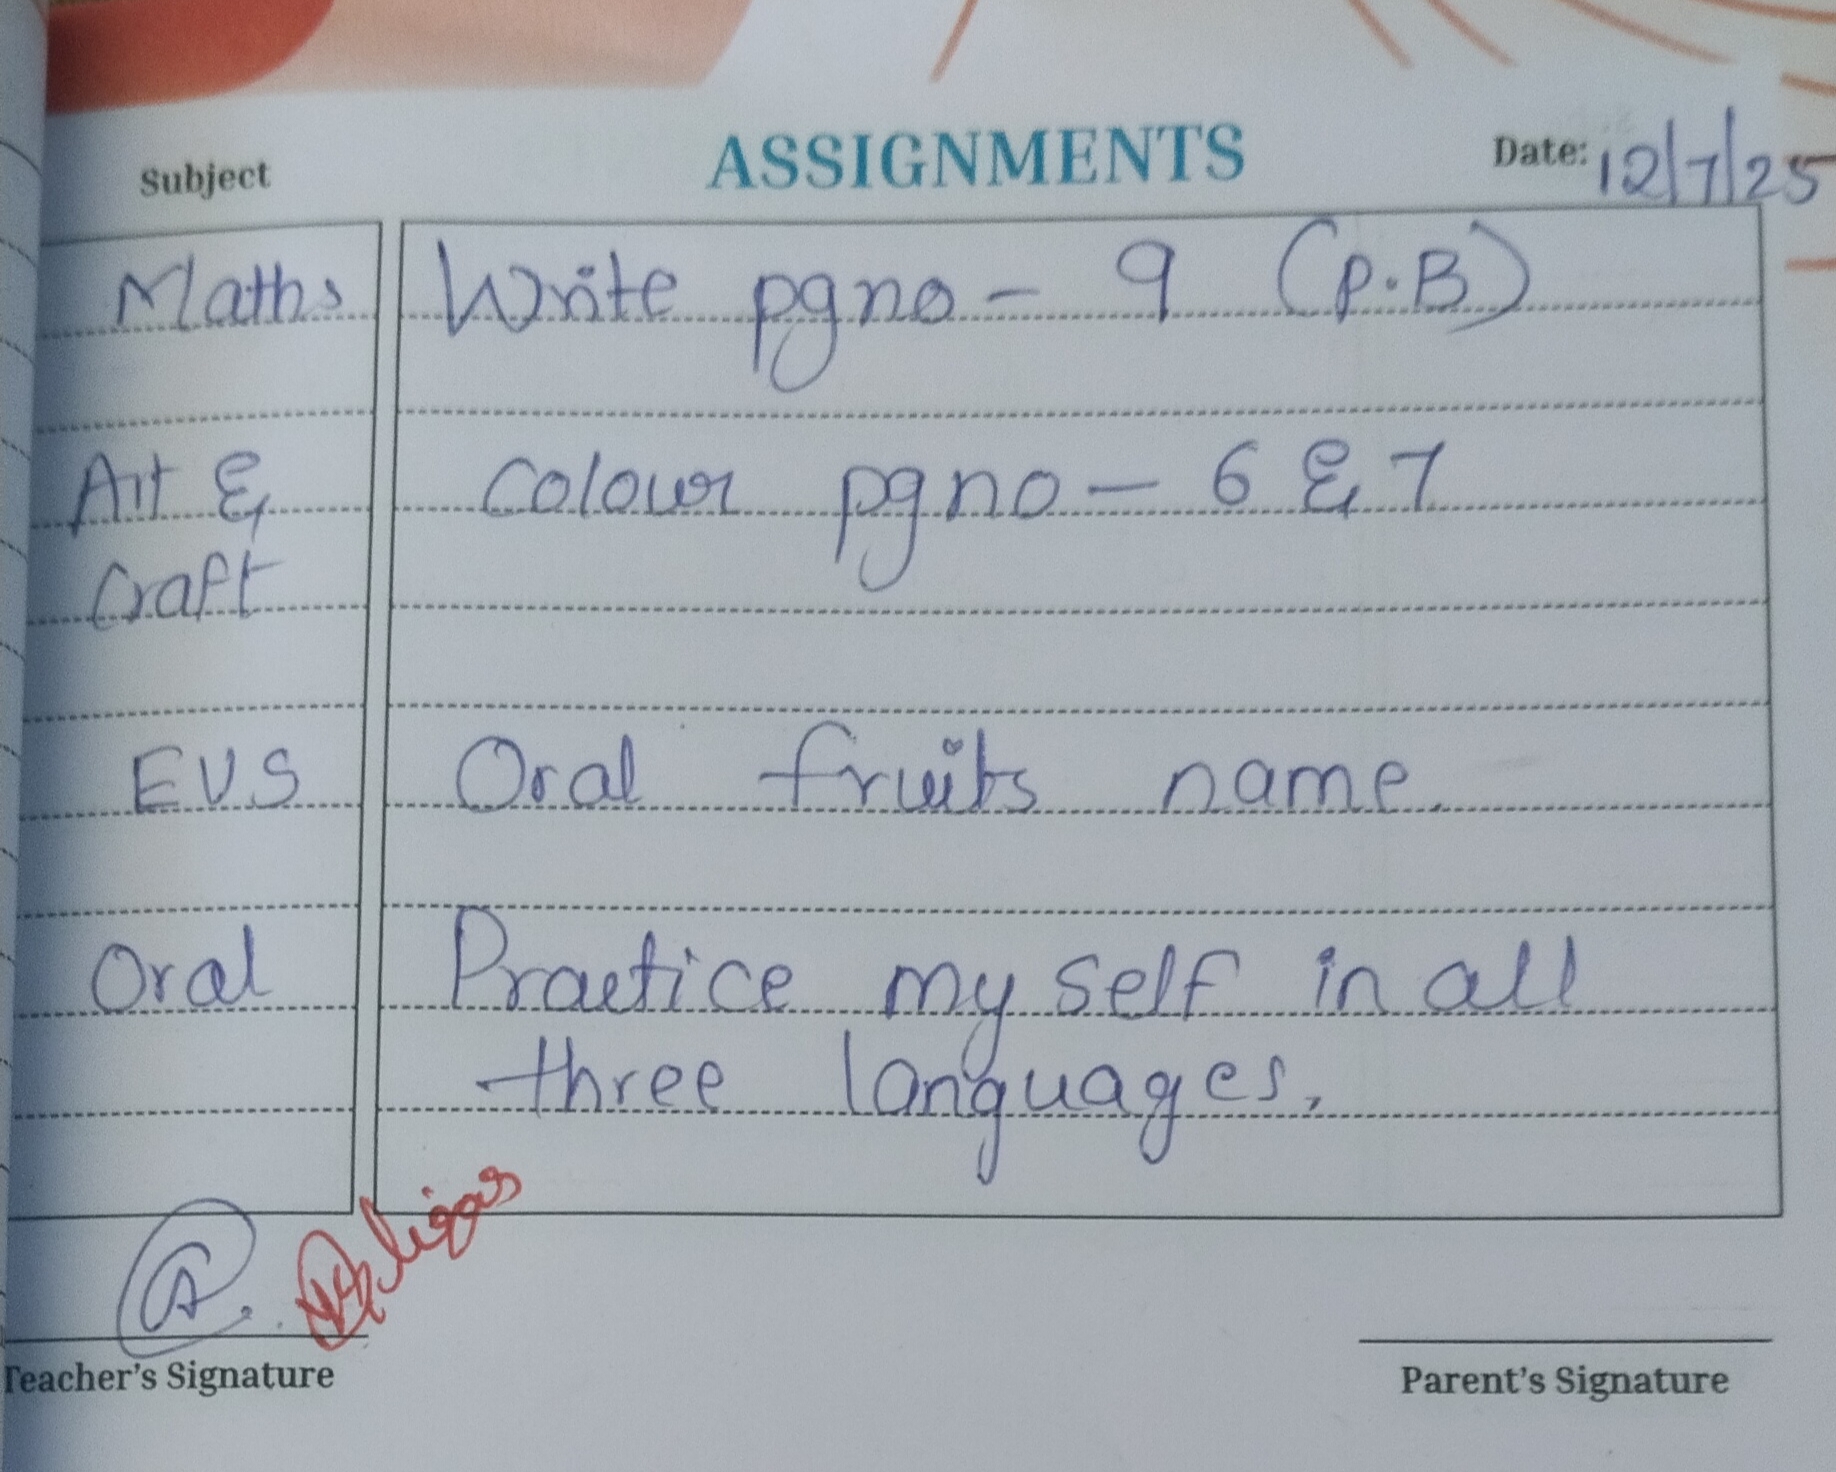 ASSIGNMENTS
Subject
Date: 12/7/25
Maths Write pgno - 9 (P.B)
Art & colour pgno - 6 & 7
Craft
EVS Oral fruits name.
Oral Practice my self in all
three languages.
Teacher's Signature
Parent's Signature